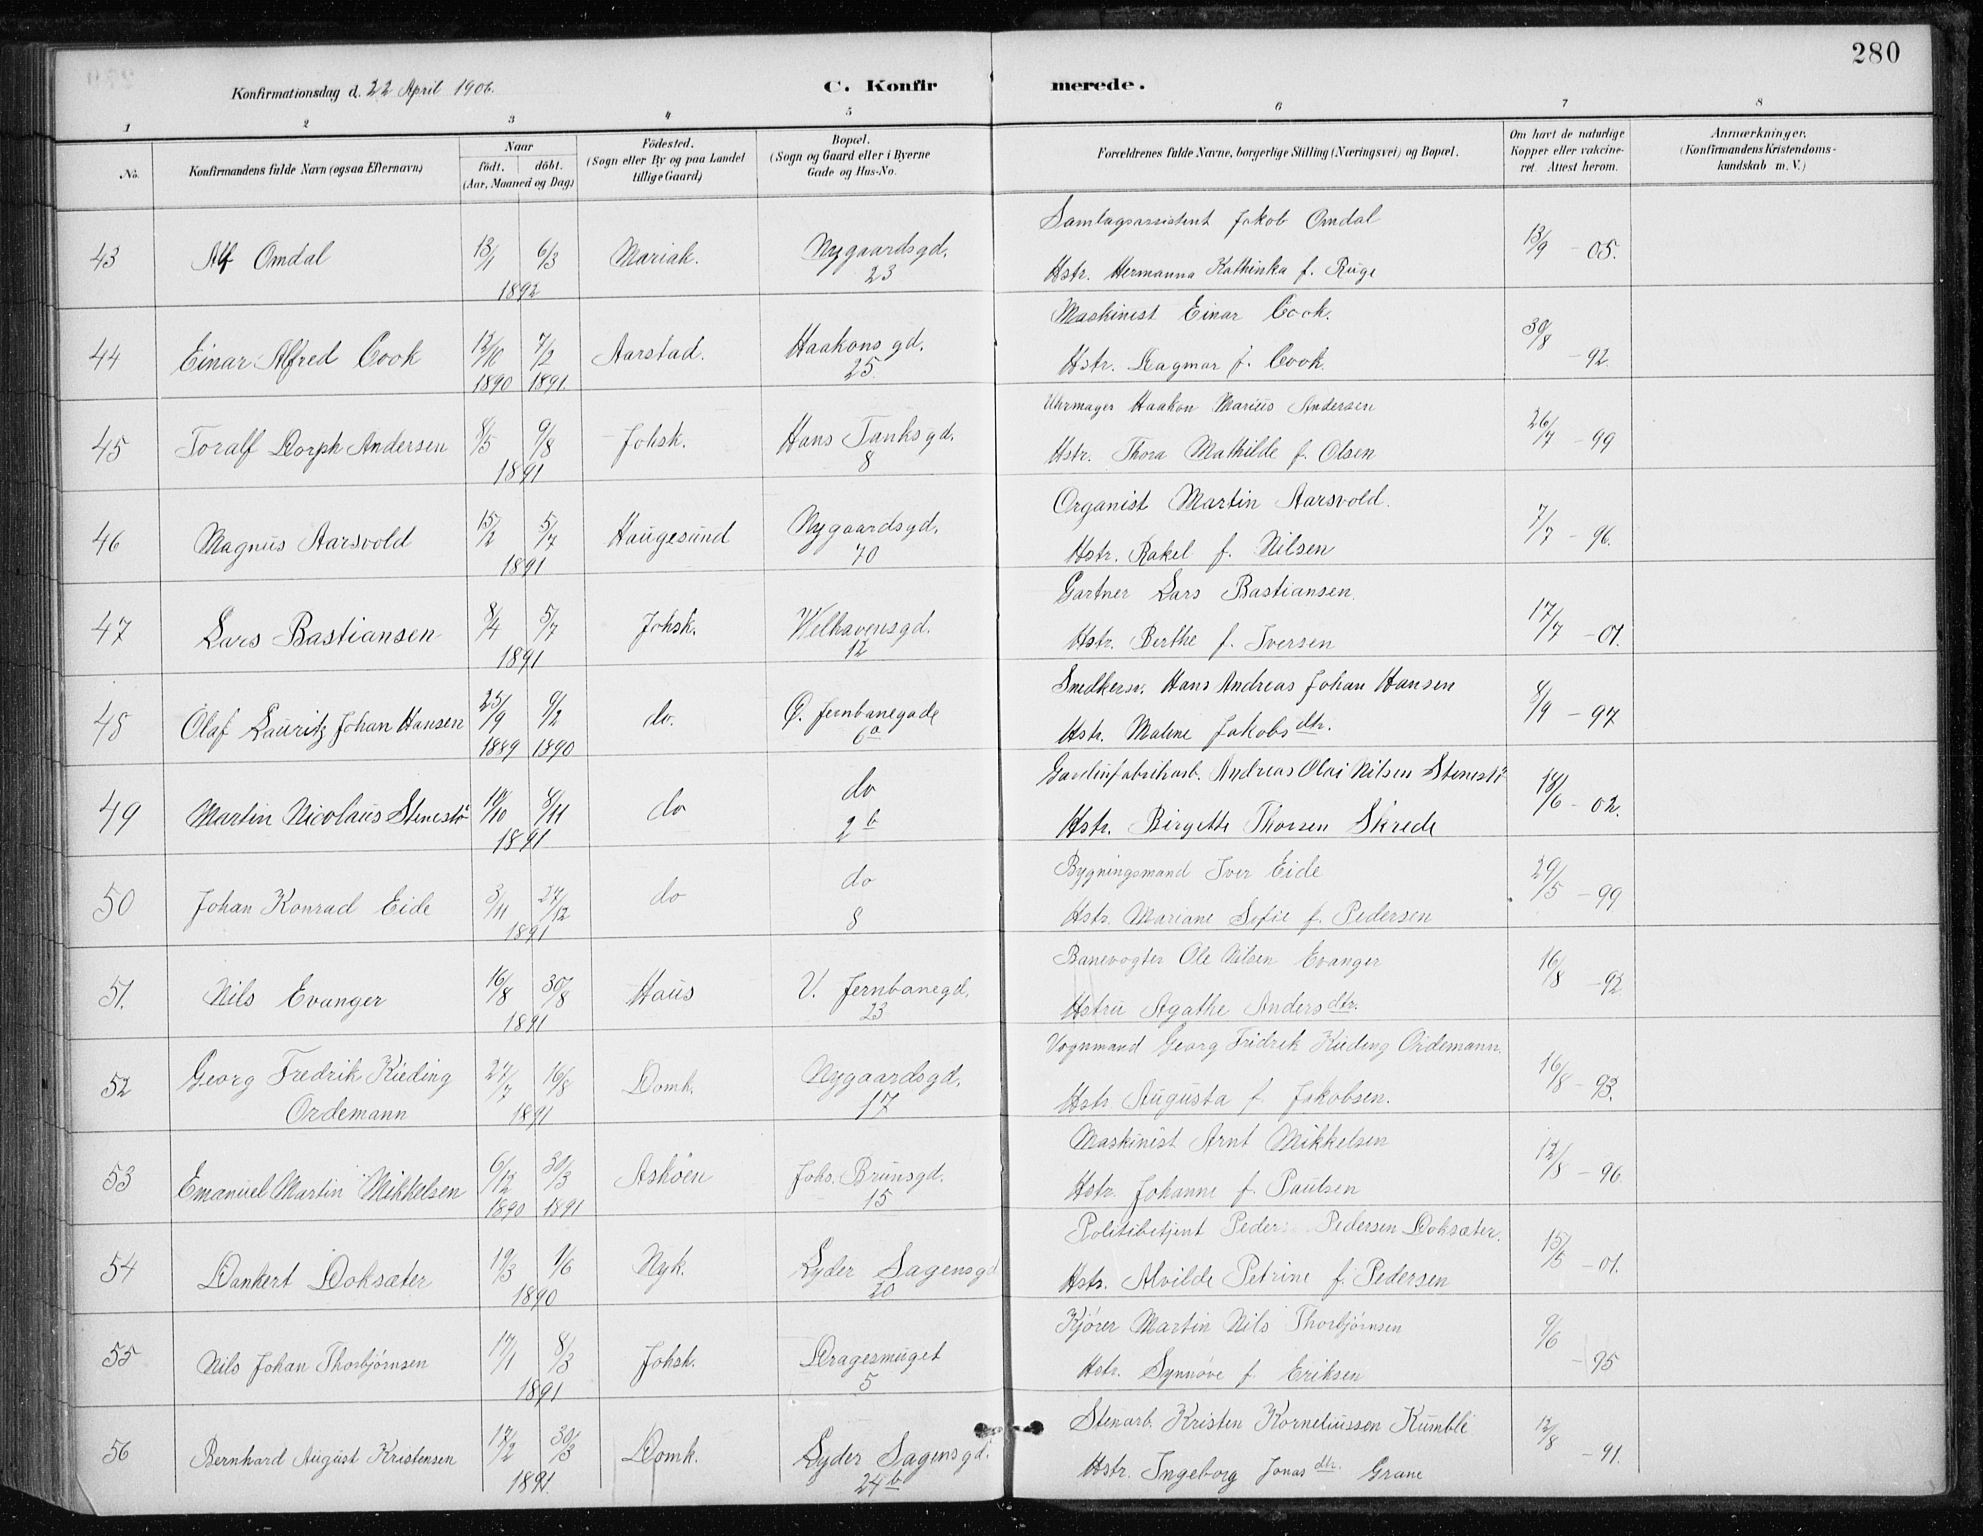 280
Konfirmationsdag d. 22 April 1906.
C. Konfir merede.
1 2 3 4 5 6 7 8
No.
Konfirmandens fulde Navn (ogsaa Efternavn)
Naar
födt. döbt.
(Aar, Maaned og Dag)
Födested.
(Sogn eller By og paa Landet
tillige Gaard)
Bopæl.
(Sogn og Gaard eller i Byerne
Gade og Hus-No.
Forældrenes fulde Navne, borgerlige Stilling (Næringsvei) og Bopæl.
Om havt de naturlige
Kopper eller vakcine-
ret. Attest herom.
Anmærkninger.
(Konfirmandens Kristendoms-
kundskab m. V.)
Samlagsassistent Jakob Omdal
43 Alf Omdal 13/1 6/3 Mariak. Nygaardsgd. 13/9 - 05.
1892 23 Hstr. Hermanna Kathinka f. Ruge
Maskinist Einar Cook.
44 Einar Alfred Cook 7/2 Aarstad. Haakonsgd. 30/8 - 92.
1890 1891. 25. Hstr. Dagmar f. Cook.
Uhrmager Haakon Marius Andersen
45 Toralf Dorph Andersen 8/5 9/8 Johsk. Hans Tanksgd. 26/7 - 99
1891 8 Hstr. Thora Mathilde f. Olsen
Organist Martin Aarsvold.
46 Magnus Aarsvold 15/2 5/7 Haugesund Nygaardsgd. 7/7 - 96.
1891 70 Hstr. Rakel f. Nilsen
Gartner Lars Bastiansen.
47 Lars Bastiansen 8/4 5/7 Johsk. Welhavensgd. 17/7 - 01.
1891 12 Hstr. Berthe f. Iversen
Snedkersv. Hans Andreas Johan Hansen
48 Olaf Lauritz Johan Hansen 25/9 9/2 do. Ø. Jernbanegade 8/9 - 97
1889 1890 6a Hstr. Malene Jakobsdtr.
Andreas Olai Nilsen Stenestö
49 Martin Nicolaus Stenestö 8/11 do do 18/6 - 02.
1891 2b Hstr. Birgitte Thorsen Skrede
Bygningsmand Iver Eide
50 Johan Konrad Eide 3/11 27/12 do do 29/5 - 99
1891 8 Hstr. Mariane Sofie f. Pedersen
Banevogter Ole Nilsen Evanger
51. Nils Evanger 16/8 30/8 Haus V. Jernbanegd. 16/8 - 92
1891 23 Hstru Agathe Andersdtr.
Vognmand Georg Fridrek Kieding Ordemann.
52 Georg Fredrik Kieding 27/7 16/8 Domk. Nygaardsgd. 16/8 - 93.
Ordemann 1891 17 Hstr. Augusta f. Jakobsen.
Maskinist Arnt Mikkelsen
53 Emanuel Martin Mikkelsen 6/12 Asköen Johs. Brunsgd. 12/8 - 96
1890 1891 15 Hstr. Johanne f. Paulsen
Politibetjent Peder Pedersen Doksæter.
54 Dankert Doksæter 19/3 1/6 Nyk. Lyder Sagensgd 15/5 - 01.
1890 20 Hstr. Alvilde Petrine f. Pedersen
Kjörer Martin Nils Thorbjörnsen
55 Nils Johan Thorbjörnsen 17/1 8/3 Johsk. Dragesmuget 9/6 - 95
1891 5 Hstr. Synnöve f. Eriksen
Stenarb. Kristen Korneliussen Kumble
56 Bernhard August Kristensen 17/2 30/3 Domk. Lyder Sagensgd. 12/8 - 91.
1891. 24b Hstr. Ingeborg Jonasdtr. Grane